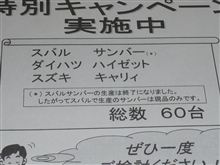 特別キャンペー
実施中
スバル サンバー(*)
ダイハツ ハイゼット
スズキ キャリィ
(*)スバルサンバーの生産は終了になりました。
したがってスバルで生産のサンバーは現品のみです。
総数 60台
ぜひ一度